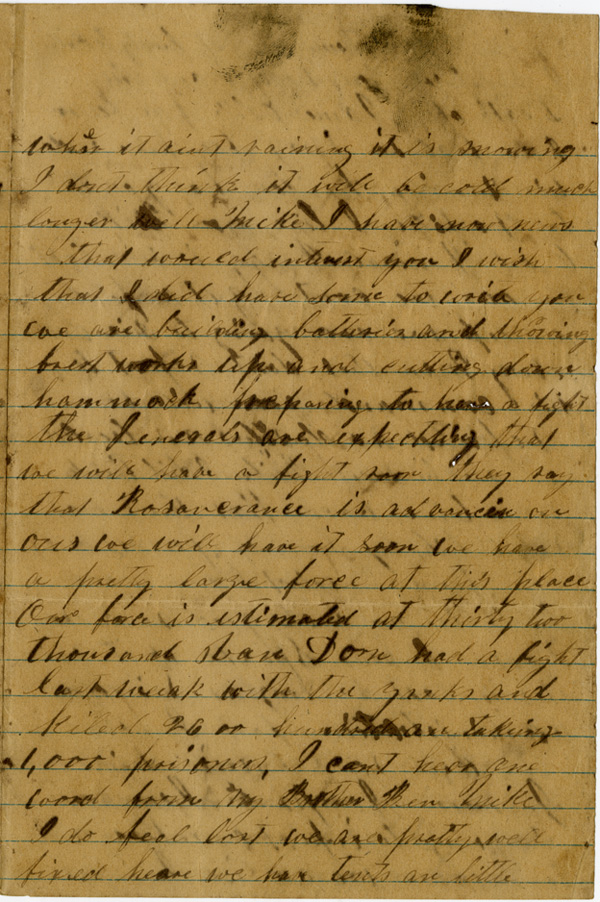 when it aint raining it is snowing
I dont think it will be cold much
longer well Mike I have now news
that would intrust you I wish
that I did have some to write you
we are building batteries and throwing
brest works up and cutting down
hammock preparing to have a fight
the Jenerals are expectting that
we will have a fight soon they say
that Rosanerance is advancin on
ous we will have it soon we have
a pretty large force at this place
Our force is estimated at thirty two
thousand Van Dorn had a fight
last weak with the yanks and
kiled 26 00 hundred an taking
1,000 prisoners, I cant hear one
word from my Brother Ben Mike
I do feal lost we are pretty well
fixed heare we have tents an little